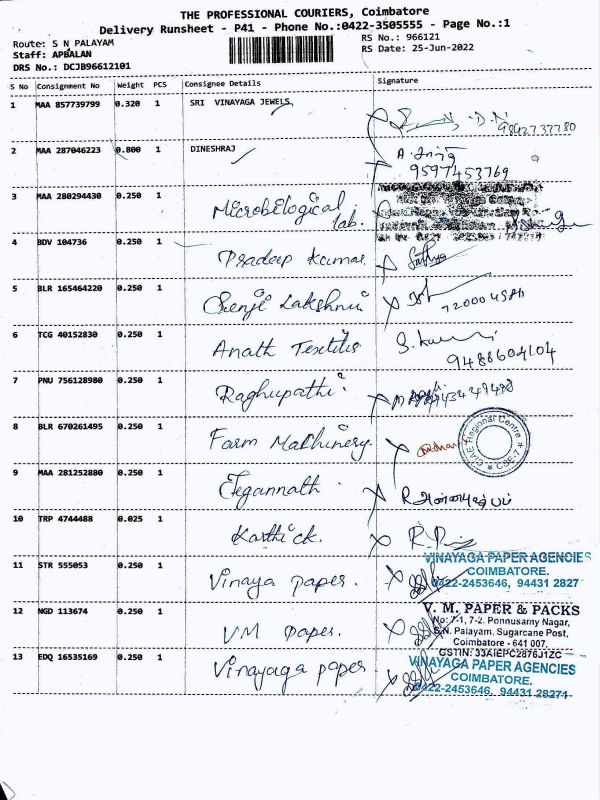 THE PROFESSIONAL COURIERS, Coimbatore
Delivery Runsheet - P41 - Phone No.:0422-3505555 - Page No.:1
Route: S N PALAYAM
RS No.: 966121
Staff: APBALAN
RS Date: 25-Jun-2022
DRS No.: DCJB96612101
S No Consignment No Weight PCS Consignee Details Signature
1 MAA 857739799 0.320 1 SRI VINAYAGA JEWELS
9842737780
2 MAA 287046223 0.800 1 DINESHRAJ
9597453769
3 MAA 280294430 0.250 1 Microbilogical lab.
4 BDV 104736 0.250 1 Pradeep Kumar
5 BLR 165464220 0.250 1 Lakshmi
6 TCG 40152830 0.250 1 Anath Textiles
9488604104
7 PNU 756128980 0.250 1 Raghupathi
8 BLR 670261495 0.250 1 Farm Machinery
CIAE Regional Centre
CBE-7
9 MAA 281252880 0.250 1 Jegannath
10 TRP 4744488 0.025 1 Karthick.
11 STR 555053 0.250 1 Vinaya paper.
VINAYAGA PAPER AGENCIES
COIMBATORE.
0422-2453646, 94431 2827
12 NGD 113674 0.250 1 VM paper.
V. M. PAPER & PACKS
No: 7-1, 7-2, Ponnusamy Nagar,
S.N. Palayam, Sugarcane Post,
Coimbatore - 641 007.
GSTIN: 33AIEPC2876J1ZC
13 EDQ 16535169 0.250 1 Vinayaga paper
VINAYAGA PAPER AGENCIES
COIMBATORE.
0422-2453646, 94431 28271